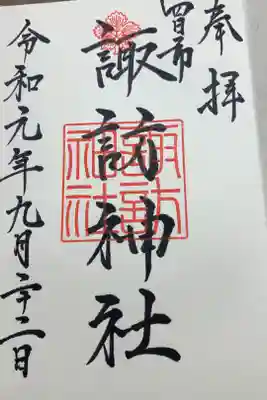 奉拝
四日市
諏訪神社
諏訪神社
令和元年九月二十二日